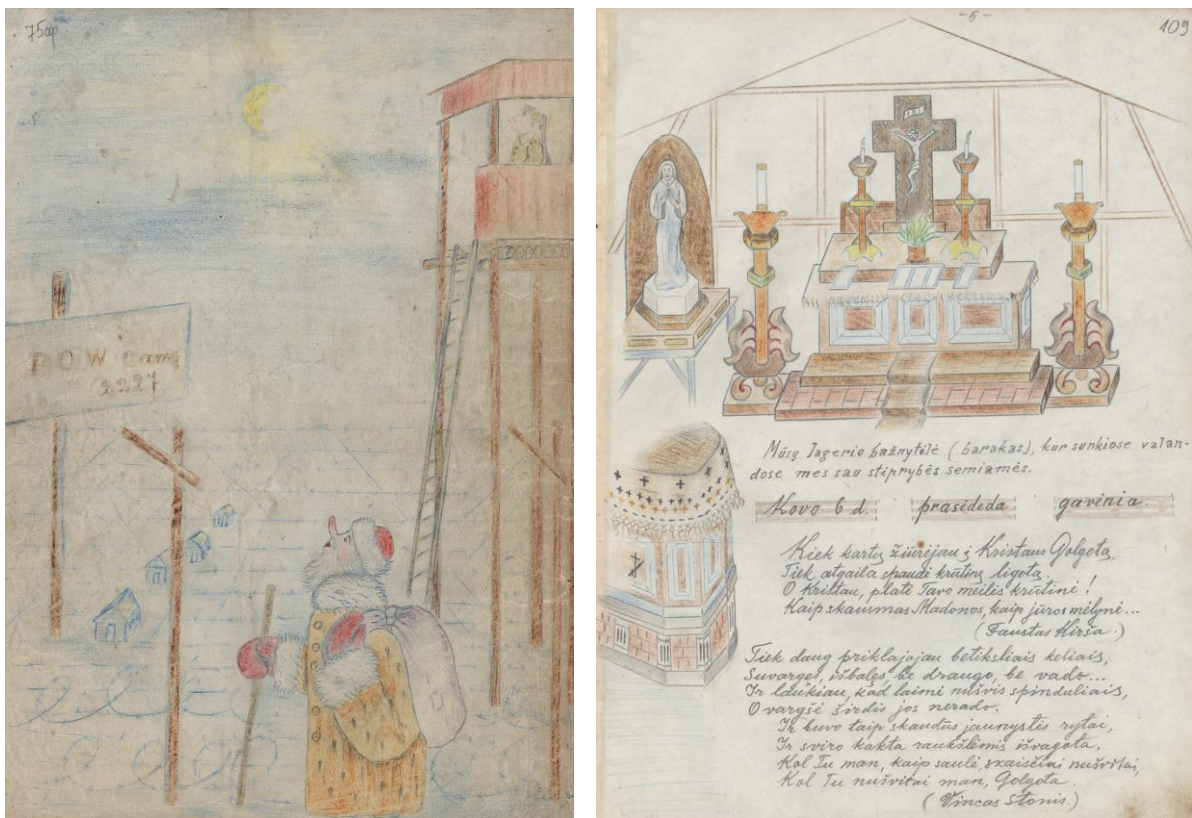 75ap
POW Camp
2227
-5-
109
INRI
Mūsų lagerio bažnytėlė (barakas), kur sunkiose valan-
dose mes sau stiprybės semiamės.
Kovo 6 d. prasideda gavėnia.
Kiek kartų žiūrėjau į Kristaus Golgotą,
Tiek atgaila spaudė krūtinę ligotą.
O Kristau, plati Tavo meilės krūtinė!
Kaip skausmas Madonos, kaip jūros mėlynė...
(Faustas Kirša.)
Tiek daug priklajojau betiksliais keliais,
Suvargęs, išbalęs, be draugo, be vado...
Ir laukiau, kad laimė nušvis spinduliais,
O vargšė širdis jos nerado.
Ir buvo taip skaudūs jaunystės rytai,
Ir sviro kakta raukšlėmis išvagota.
Kol Tu man, kaip saulė, skaisčiai nušvitai,
Kol Tu nušvitai man, Golgota.
(Vincas Stonis.)